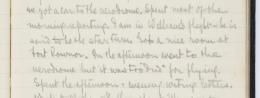 we got a car to the aerodrome. Spent most of the
morning reporting. I am in Willard's flight he is
said to be the star turn. Got a nice room at
Fort Rownor. In the afternoon went to the
aerodrome but it was too "dud" for flying.
Spent the afternoon & evening writing letters.